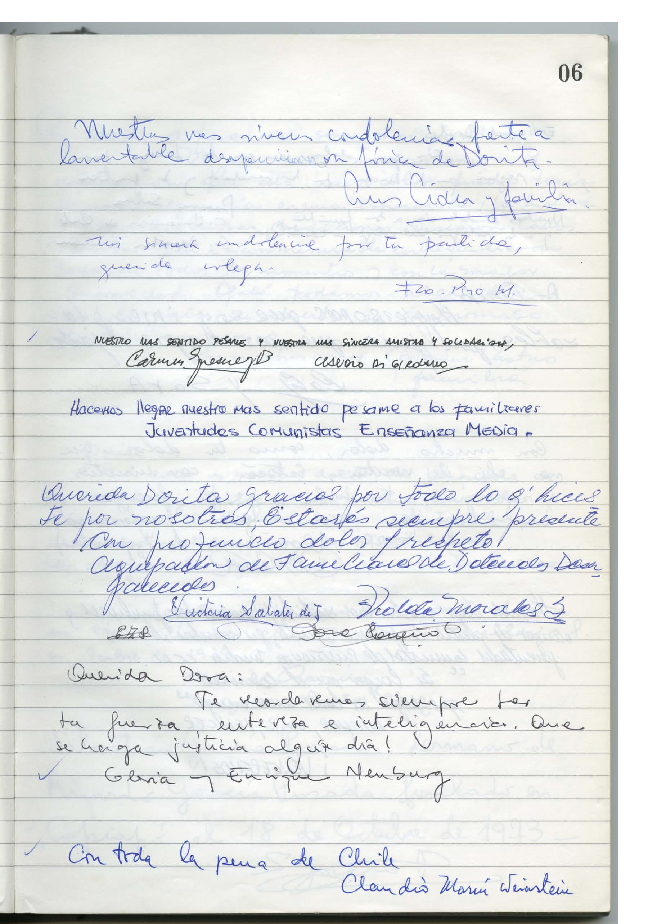 06
Nuestras mas sinceras condolencias frente a
lamentable desaparición física de Dorita.
y familia.
Mi sincera condolencia por tu partida,
querida colega.
NUESTRO MAS SENTIDO PESAME Y NUESTRA MAS SINCERA AMISTAD Y SOLIDARIDAD,
Carmen
Hacemos llegar nuestro mas sentido pesame a los familiares
Juventudes Comunistas Enseñanza Media.
Querida Dorita gracias por todo lo q' hicis
te por nosotros, Estarás siempre presente
Con profundo dolor y respeto
Agrupación de Familiares de Detenidos Desa-
parecidos.
Victoria Sabater de J Morales
Jose
Querida Dora:
Te recordaremos siempre por
tu fuerza, entereza e inteligencia. Que
se haga justicia algún día!
Gloria y Enrique Neuburg
Con toda la pena de Chile
Claudio Weinstein